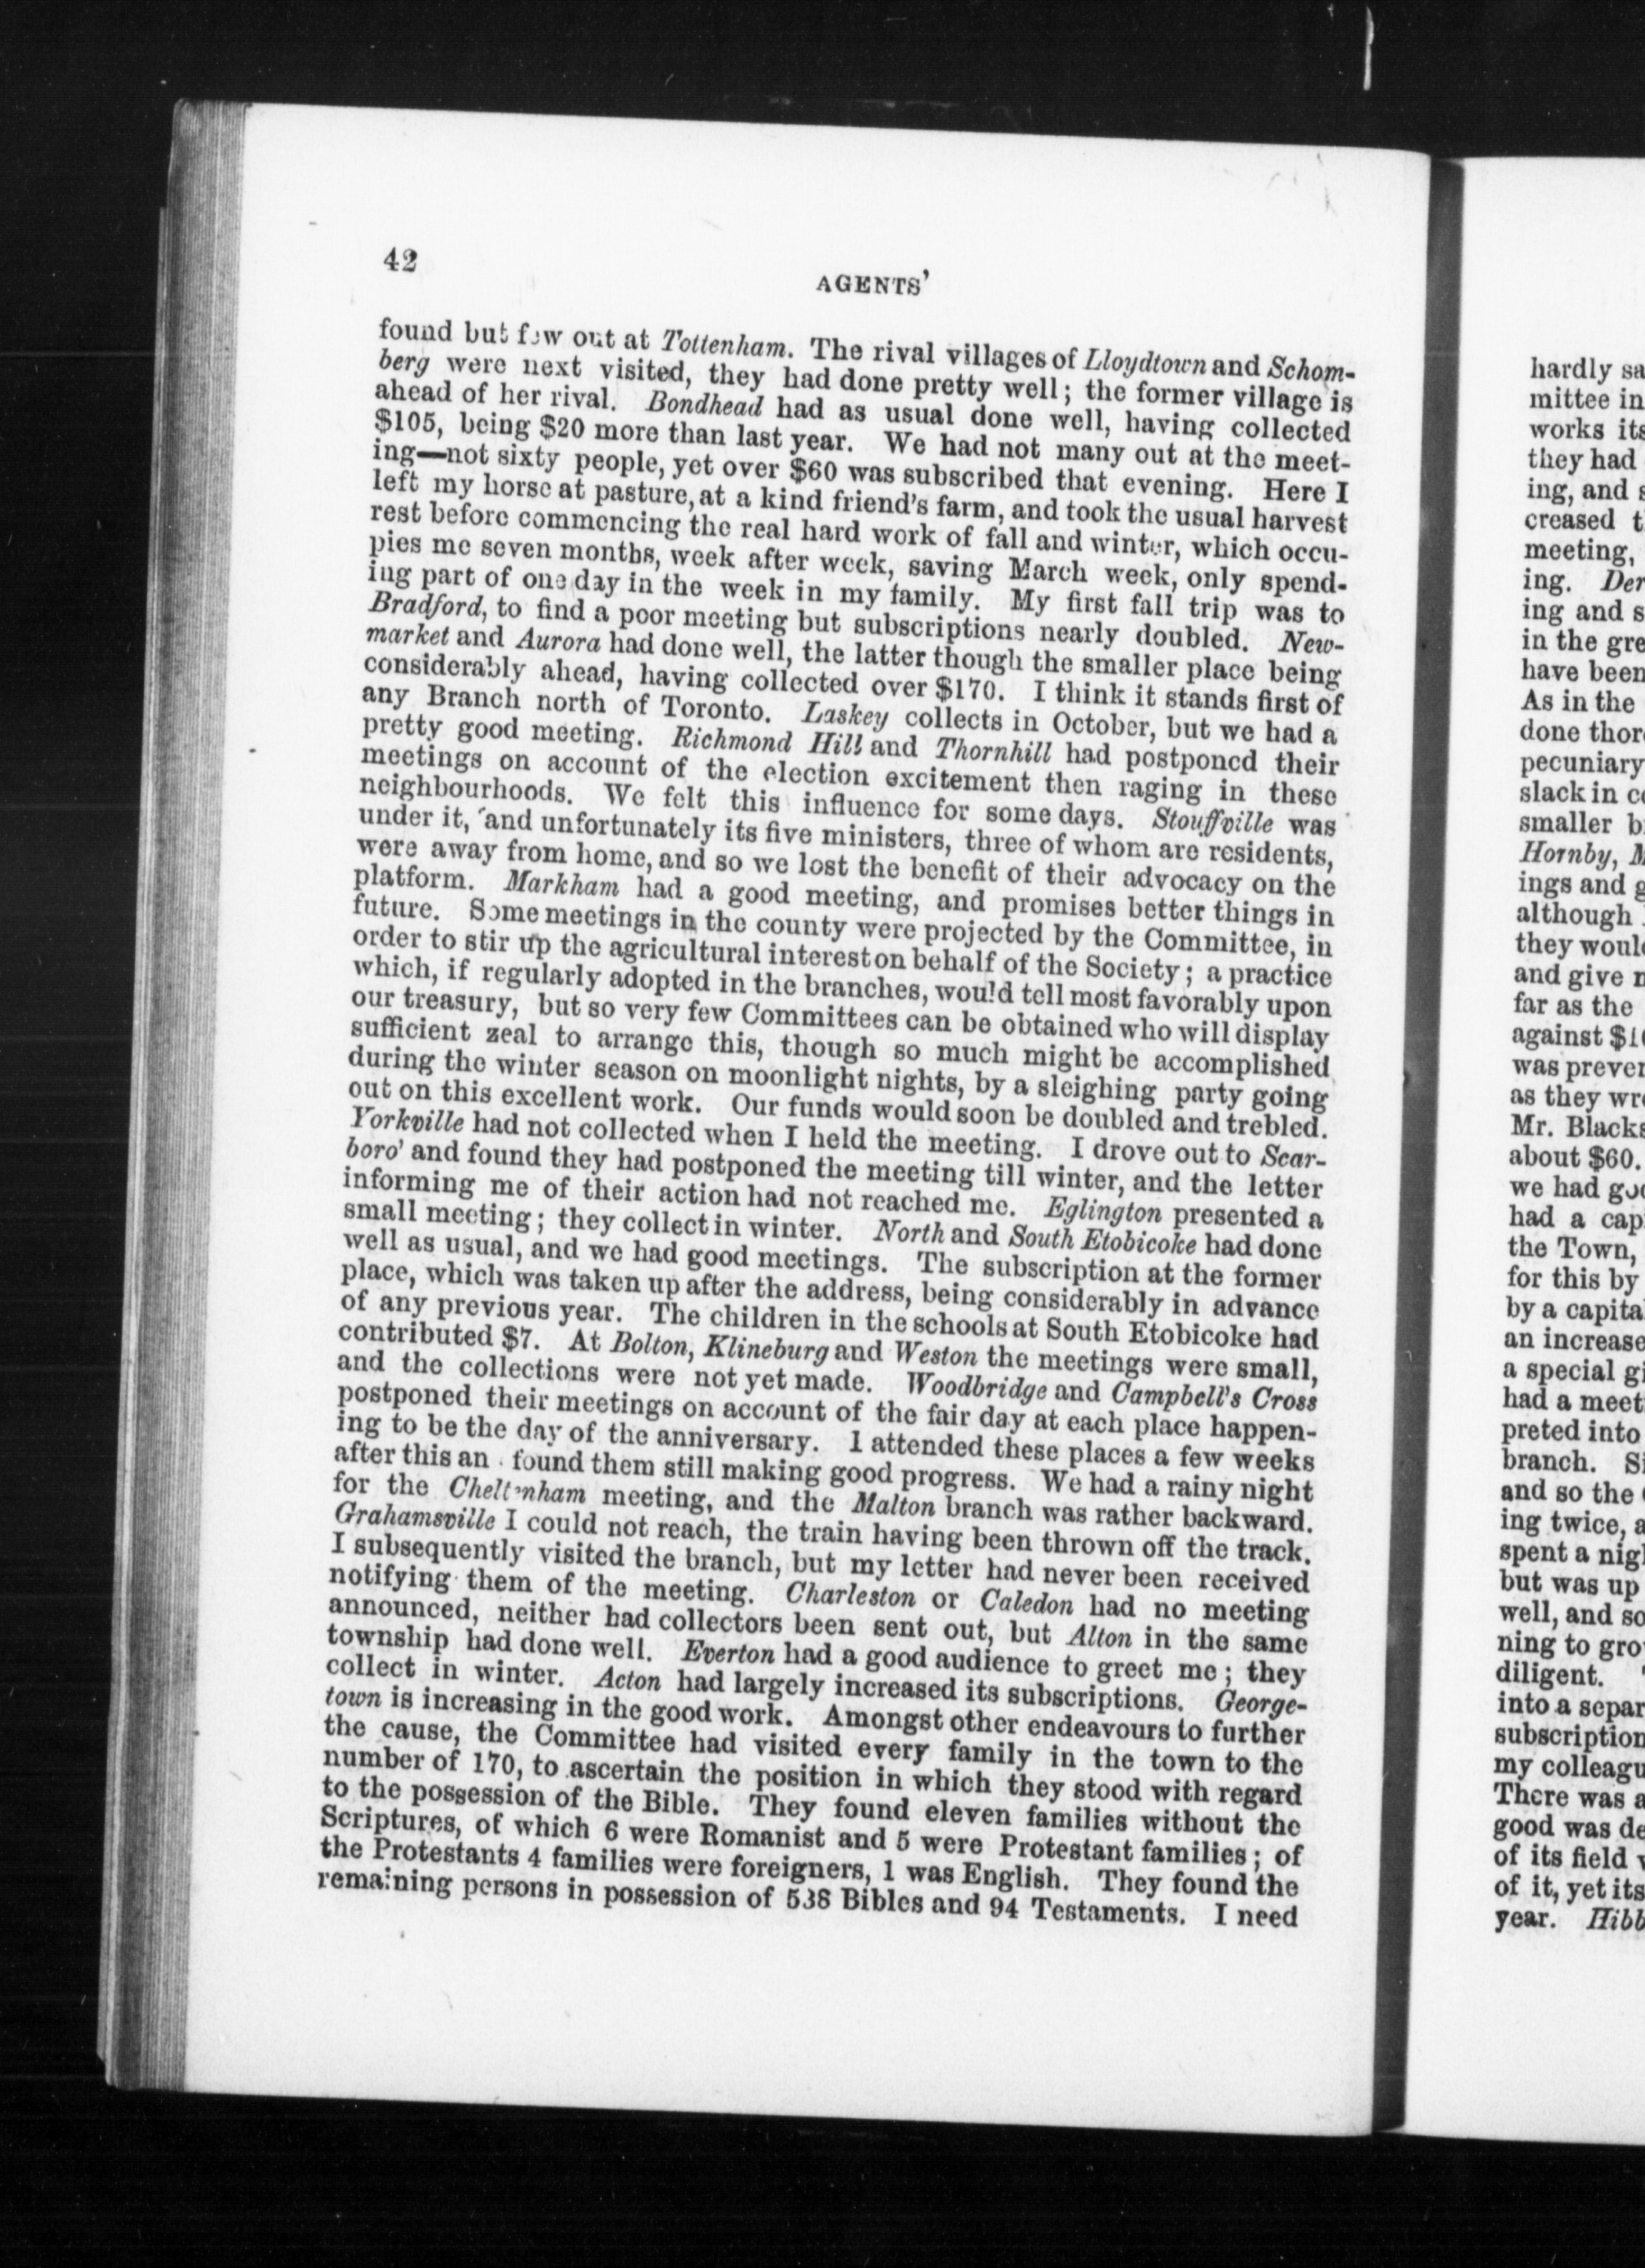 42
AGENTS'
found but few out at Tottenham. The rival villages of Lloydtown and Schom-
berg were next visited, they had done pretty well; the former village is
ahead of her rival. Bondhead had as usual done well, having collected
$105, being $20 more than last year. We had not many out at the meet-
ing—not sixty people, yet over $60 was subscribed that evening. Here I
left my horse at pasture, at a kind friend's farm, and took the usual harvest
rest before commencing the real hard work of fall and winter, which occu-
pies me seven months, week after week, saving March week, only spend-
ing part of one day in the week in my family. My first fall trip was to
Bradford, to find a poor meeting but subscriptions nearly doubled. New-
market and Aurora had done well, the latter though the smaller place being
considerably ahead, having collected over $170. I think it stands first of
any Branch north of Toronto. Laskey collects in October, but we had a
pretty good meeting. Richmond Hill and Thornhill had postponed their
meetings on account of the election excitement then raging in these
neighbourhoods. We felt this influence for some days. Stouffville was
under it, and unfortunately its five ministers, three of whom are residents,
were away from home, and so we lost the benefit of their advocacy on the
platform. Markham had a good meeting, and promises better things in
future. Some meetings in the county were projected by the Committee, in
order to stir up the agricultural interest on behalf of the Society; a practice
which, if regularly adopted in the branches, would tell most favorably upon
our treasury, but so very few Committees can be obtained who will display
sufficient zeal to arrange this, though so much might be accomplished
during the winter season on moonlight nights, by a sleighing party going
out on this excellent work. Our funds would soon be doubled and trebled.
Yorkville had not collected when I held the meeting. I drove out to Scar-
boro' and found they had postponed the meeting till winter, and the letter
informing me of their action had not reached me. Eglington presented a
small meeting; they collect in winter. North and South Etobicoke had done
well as usual, and we had good meetings. The subscription at the former
place, which was taken up after the address, being considerably in advance
of any previous year. The children in the schools at South Etobicoke had
contributed $7. At Bolton, Klineburg and Weston the meetings were small,
and the collections were not yet made. Woodbridge and Campbell's Cross
postponed their meetings on account of the fair day at each place happen-
ing to be the day of the anniversary. I attended these places a few weeks
after this an found them still making good progress. We had a rainy night
for the Cheltenham meeting, and the Malton branch was rather backward.
Grahamsville I could not reach, the train having been thrown off the track.
I subsequently visited the branch, but my letter had never been received
notifying them of the meeting. Charleston or Caledon had no meeting
announced, neither had collectors been sent out, but Alton in the same
township had done well. Everton had a good audience to greet me; they
collect in winter. Acton had largely increased its subscriptions. George-
town is increasing in the good work. Amongst other endeavours to further
the cause, the Committee had visited every family in the town to the
number of 170, to ascertain the position in which they stood with regard
to the possession of the Bible. They found eleven families without the
Scriptures, of which 6 were Romanist and 5 were Protestant families; of
the Protestants 4 families were foreigners, 1 was English. They found the
remaining persons in possession of 538 Bibles and 94 Testaments. I need
hardly
mittee in
works its
they had
ing, and
creased
meeting,
ing.
ing and
in the
have been
As in the
done
pecuniary
slack in
smaller
Hornby,
ings and
although
they would
and give
far as the
against
was
as they
Mr.
about $60.
we had
had a
the Town,
for this by
by a
an increase
a special
had a
preted into
branch.
and so the
ing twice,
spent a
but was up
well, and
ning to
diligent.
into a
subscription
my
There was
good was
of its field
of it, yet its
year.